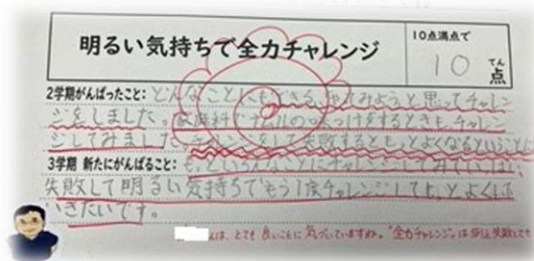 明るい気持ちで全力チャレンジ
10点満点で
10点
てん
2学期がんばったこと:どんなことにもできる、やってみようと思ってチャレン
ジをしました。家庭科でナップの
をするときもチャレン
ジしてみました。チャレンジをして失敗するともっとよくなるということに
3学期 新たにがんばること:も、といろんなことにチャレンジしてみて
失敗して明るい気持ちでもう1度チャレンジしても、とよくして
いきたいです。
んは、とても良いことに気づいていますね。"全力チャレンジ"は
失敗しても